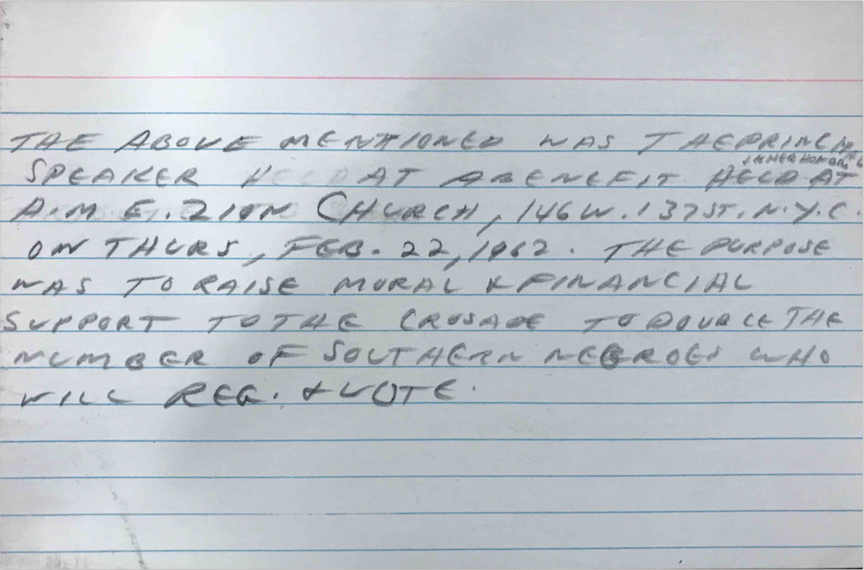 THE ABOVE MENTIONED WAS THE PRINCIPL
SPEAKER AT A BENEFIT IN HER HONOR HELD AT
A.M.E. ZION CHURCH, 146 W. 137 ST. N.Y.C.
ON THURS, FEB. 22, 1962. THE PURPOSE
WAS TO RAISE MORAL & FINANCIAL
SUPPORT TO THE CRUSADE TO DOUBLE THE
NUMBER OF SOUTHERN NEGROES WHO
WILL REG. & VOTE.